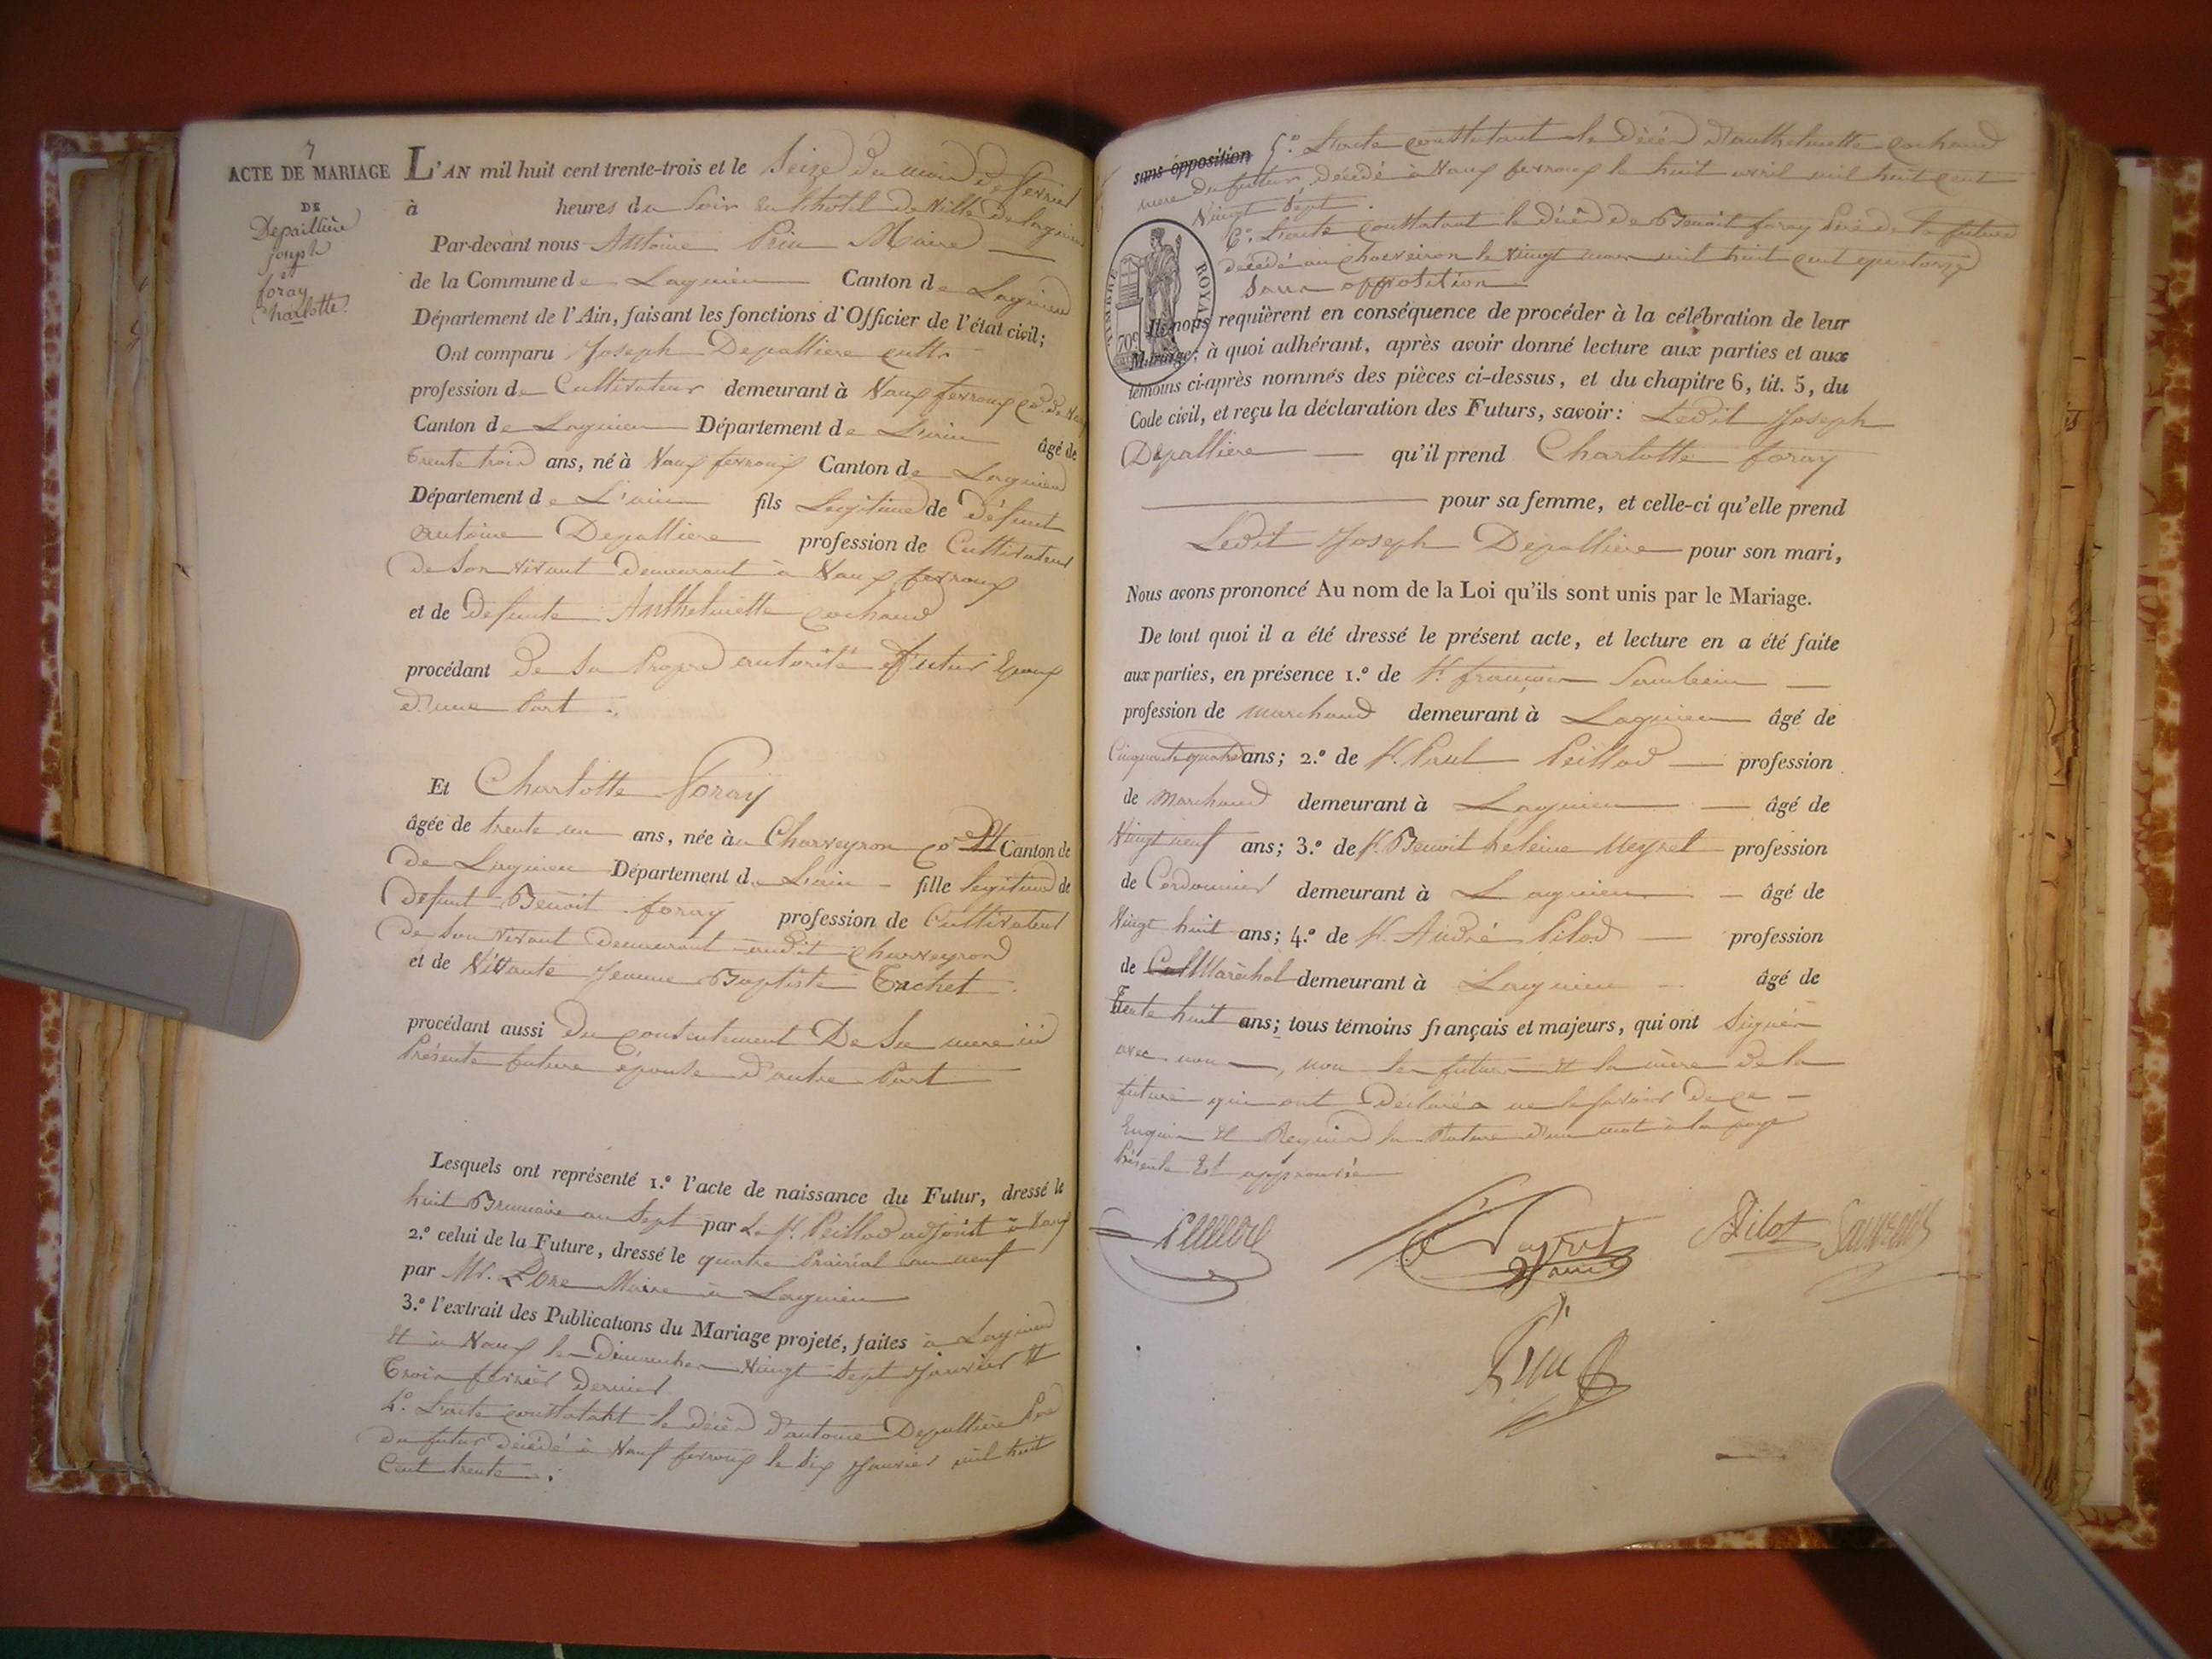 7
ACTE DE MARIAGE
DE
Depaillière
Joseph
et
foray
Charlotte.
L'AN mil huit cent trente-trois et le Seize du mois de fevrier
à heures du Soir en l'hotel de Ville de Lagnieu
Par-devant nous Antoine Prin Maire
de la Commune de Lagnieu Canton de Lagnieu
Département de l'Ain, faisant les fonctions d'Officier de l'état civil;
Ont comparu Joseph Depalliere cultr
profession de Cultivateur demeurant à Vaux fevroux
Canton de Lagnieu Département de L'ain âgé de
trente trois ans, né à Vaux fevroux Canton de Lagnieu
Département de L'ain fils Legitime de Défunt
antoine Depalliere profession de Cultivateur
de Son vivant demeurant à Vaux fevroux
et de Defunte Anthelmette cochand
procédant de Sa Propre autorité futur Epoux
d'une Part.
Et Charlotte Foray
âgée de trente un ans, née à Charveyron Canton de
de Lagnieu Département de L'ain fille legitime de
défunt Benoit foray profession de Cultivateur
de Son vivant demeurant audit Charveyron
et de Vivante Jeanne Baptiste Trchet
procédant aussi du consentement De Sa mere ici
Présente future épouse d'autre Part
Lesquels ont représenté 1.º l'acte de naissance du Futur, dressé le
huit Brumaire an Sept par Le Sr. Peillod adjoint à Vaux
2.º celui de la Future, dressé le quatre Prairial an neuf
par Mr. Maire à Lagnieu
3.º l'extrait des Publications du Mariage projeté, faites à Lagnieu
et à Vaux les Dimanches Vingt Sept Janvier et
Trois fevrier Dernier
4.º L'acte constatant le décès d'antoine Depalliere Père
du futur décédé à Vaux fevroux le Six Janvier mil huit
Cent trente.
sans opposition 5.º L'acte constatant le décès d'anthelmette cochand
mere du futur, décédé à Vaux fevroux le huit avril mil huit cent
Vingt Sept.
6.º L'acte constatant le décès de Benoit foray Père de la future
décédé au charveiron le Vingt mars mil huit cent quatorze
Sans opposition
TIMBRE ROYAL
70c
Ils nous requièrent en conséquence de procéder à la célébration de leur
Mariage; à quoi adhérant, après avoir donné lecture aux parties et aux
témoins ci-après nommés des pièces ci-dessus, et du chapitre 6, tit. 5, du
Code civil, et reçu la déclaration des Futurs, savoir: Ledit Joseph
Depalliere qu'il prend Charlotte foray
pour sa femme, et celle-ci qu'elle prend
Ledit Joseph Dépalliere pour son mari,
Nous avons prononcé Au nom de la Loi qu'ils sont unis par le Mariage.
De tout quoi il a été dressé le présent acte, et lecture en a été faite
aux parties, en présence 1.º de Sr. françois
profession de marchand demeurant à Lagnieu âgé de
Cinquante quatre ans; 2.º de Sr. Paul Peillod profession
de Marchand demeurant à Lagnieu âgé de
Vingt neuf ans; 3.º de Sr. Benoit heleine Meyret profession
de Cordonnier demeurant à Lagnieu âgé de
Vingt huit ans; 4.º de Sr. André Pilod profession
de Cul Maréchal demeurant à Lagnieu âgé de
Trente huit ans; tous témoins français et majeurs, qui ont Signés
avec nous, non les futurs et la mère de la
future qui ont Déclarés ne le Savoir de ce
Enquis et Requis la Rature d'un mot à la page
Présente Est approuvée
Peillod
Pilot
Prin